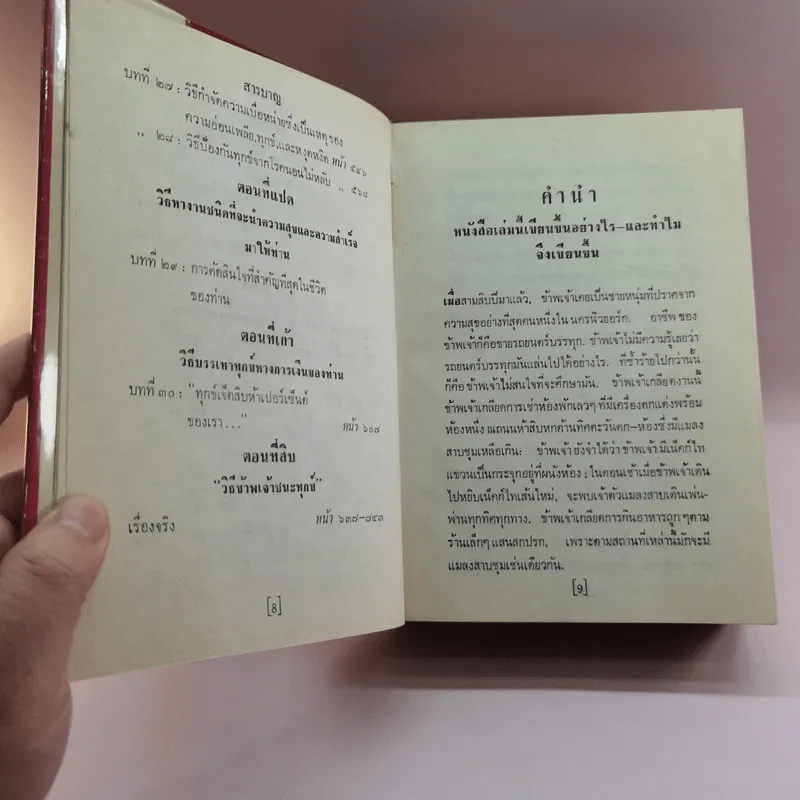 สารบาญ
บทที่ ๒๗ : วิธีกำจัดความเบื่อหน่ายซึ่งเป็นเหตุของ
ความอ่อนเพลีย,ทุกข์,และหงุดหงิด หน้า ๕๔๖
„ ๒๘ : วิธีป้องกันทุกข์จากโรคนอนไม่หลับ „ ๕๖๘
ตอนที่แปด
วิธีหางานชนิดที่จะนำความสุขและความสำเร็จ
มาให้ท่าน
บทที่ ๒๙ : การตัดสินใจที่สำคัญที่สุดในชีวิต
ของท่าน
ตอนที่เก้า
วิธีบรรเทาทุกข์ทางการเงินของท่าน
บทที่ ๓๐ : “ทุกข์เจ็ดสิบห้าเปอร์เซ็นต์
ของเรา...” หน้า ๖๐๘
ตอนที่สิบ
“วิธีข้าพเจ้าชนะทุกข์”
เรื่องจริง หน้า ๖๓๗-๗๔๓
[8]
คำนำ
หนังสือเล่มนี้เขียนขึ้นอย่างไร–และทำไม
จึงเขียนขึ้น
เมื่อสามสิบปีมาแล้ว, ข้าพเจ้าเคยเป็นชายหนุ่มที่ปราศจาก
ความสุขอย่างที่สุดคนหนึ่งใน นครนิวยอร์ก. อาชีพ ของ
ข้าพเจ้าก็คือขายรถยนตร์บรรทุก. ข้าพเจ้าไม่มีความรู้เลยว่า
รถยนตร์บรรทุกมันแล่นไปได้อย่างไร. ที่ซ้ำร้ายไปกว่านั้น
ก็คือ ข้าพเจ้าไม่สนใจที่จะศึกษามัน. ข้าพเจ้าเกลียดงานนี้
ข้าพเจ้าเกลียดการเช่าห้องพักเลวๆ ที่มีเครื่องตกแต่งพร้อม
ห้องหนึ่ง ณถนนห้าสิบหกด้านทิศตะวันตก–ห้องซึ่งมีแมลง
สาบชุมเหลือเกิน: ข้าพเจ้า ยังจำได้ว่า ข้าพเจ้า มีเน็คก์ไท
แขวนเป็นกระจุกอยู่ที่ผนังห้อง; ในตอนเช้าเมื่อข้าพเจ้าเดิน
ไปหยิบเน็คก์ไทเส้นใหม่, จะพบเจ้าตัวแมลงสาบเดินเพ่น-
พ่านทุกทิศทุกทาง. ข้าพเจ้าเกลียดการกินอาหารถูก ๆตาม
ร้านเล็กๆ แสนสกปรก, เพราะตามสถานที่เหล่านี้มักจะมี
แมลงสาบชุมเช่นเดียวกัน.
[9]